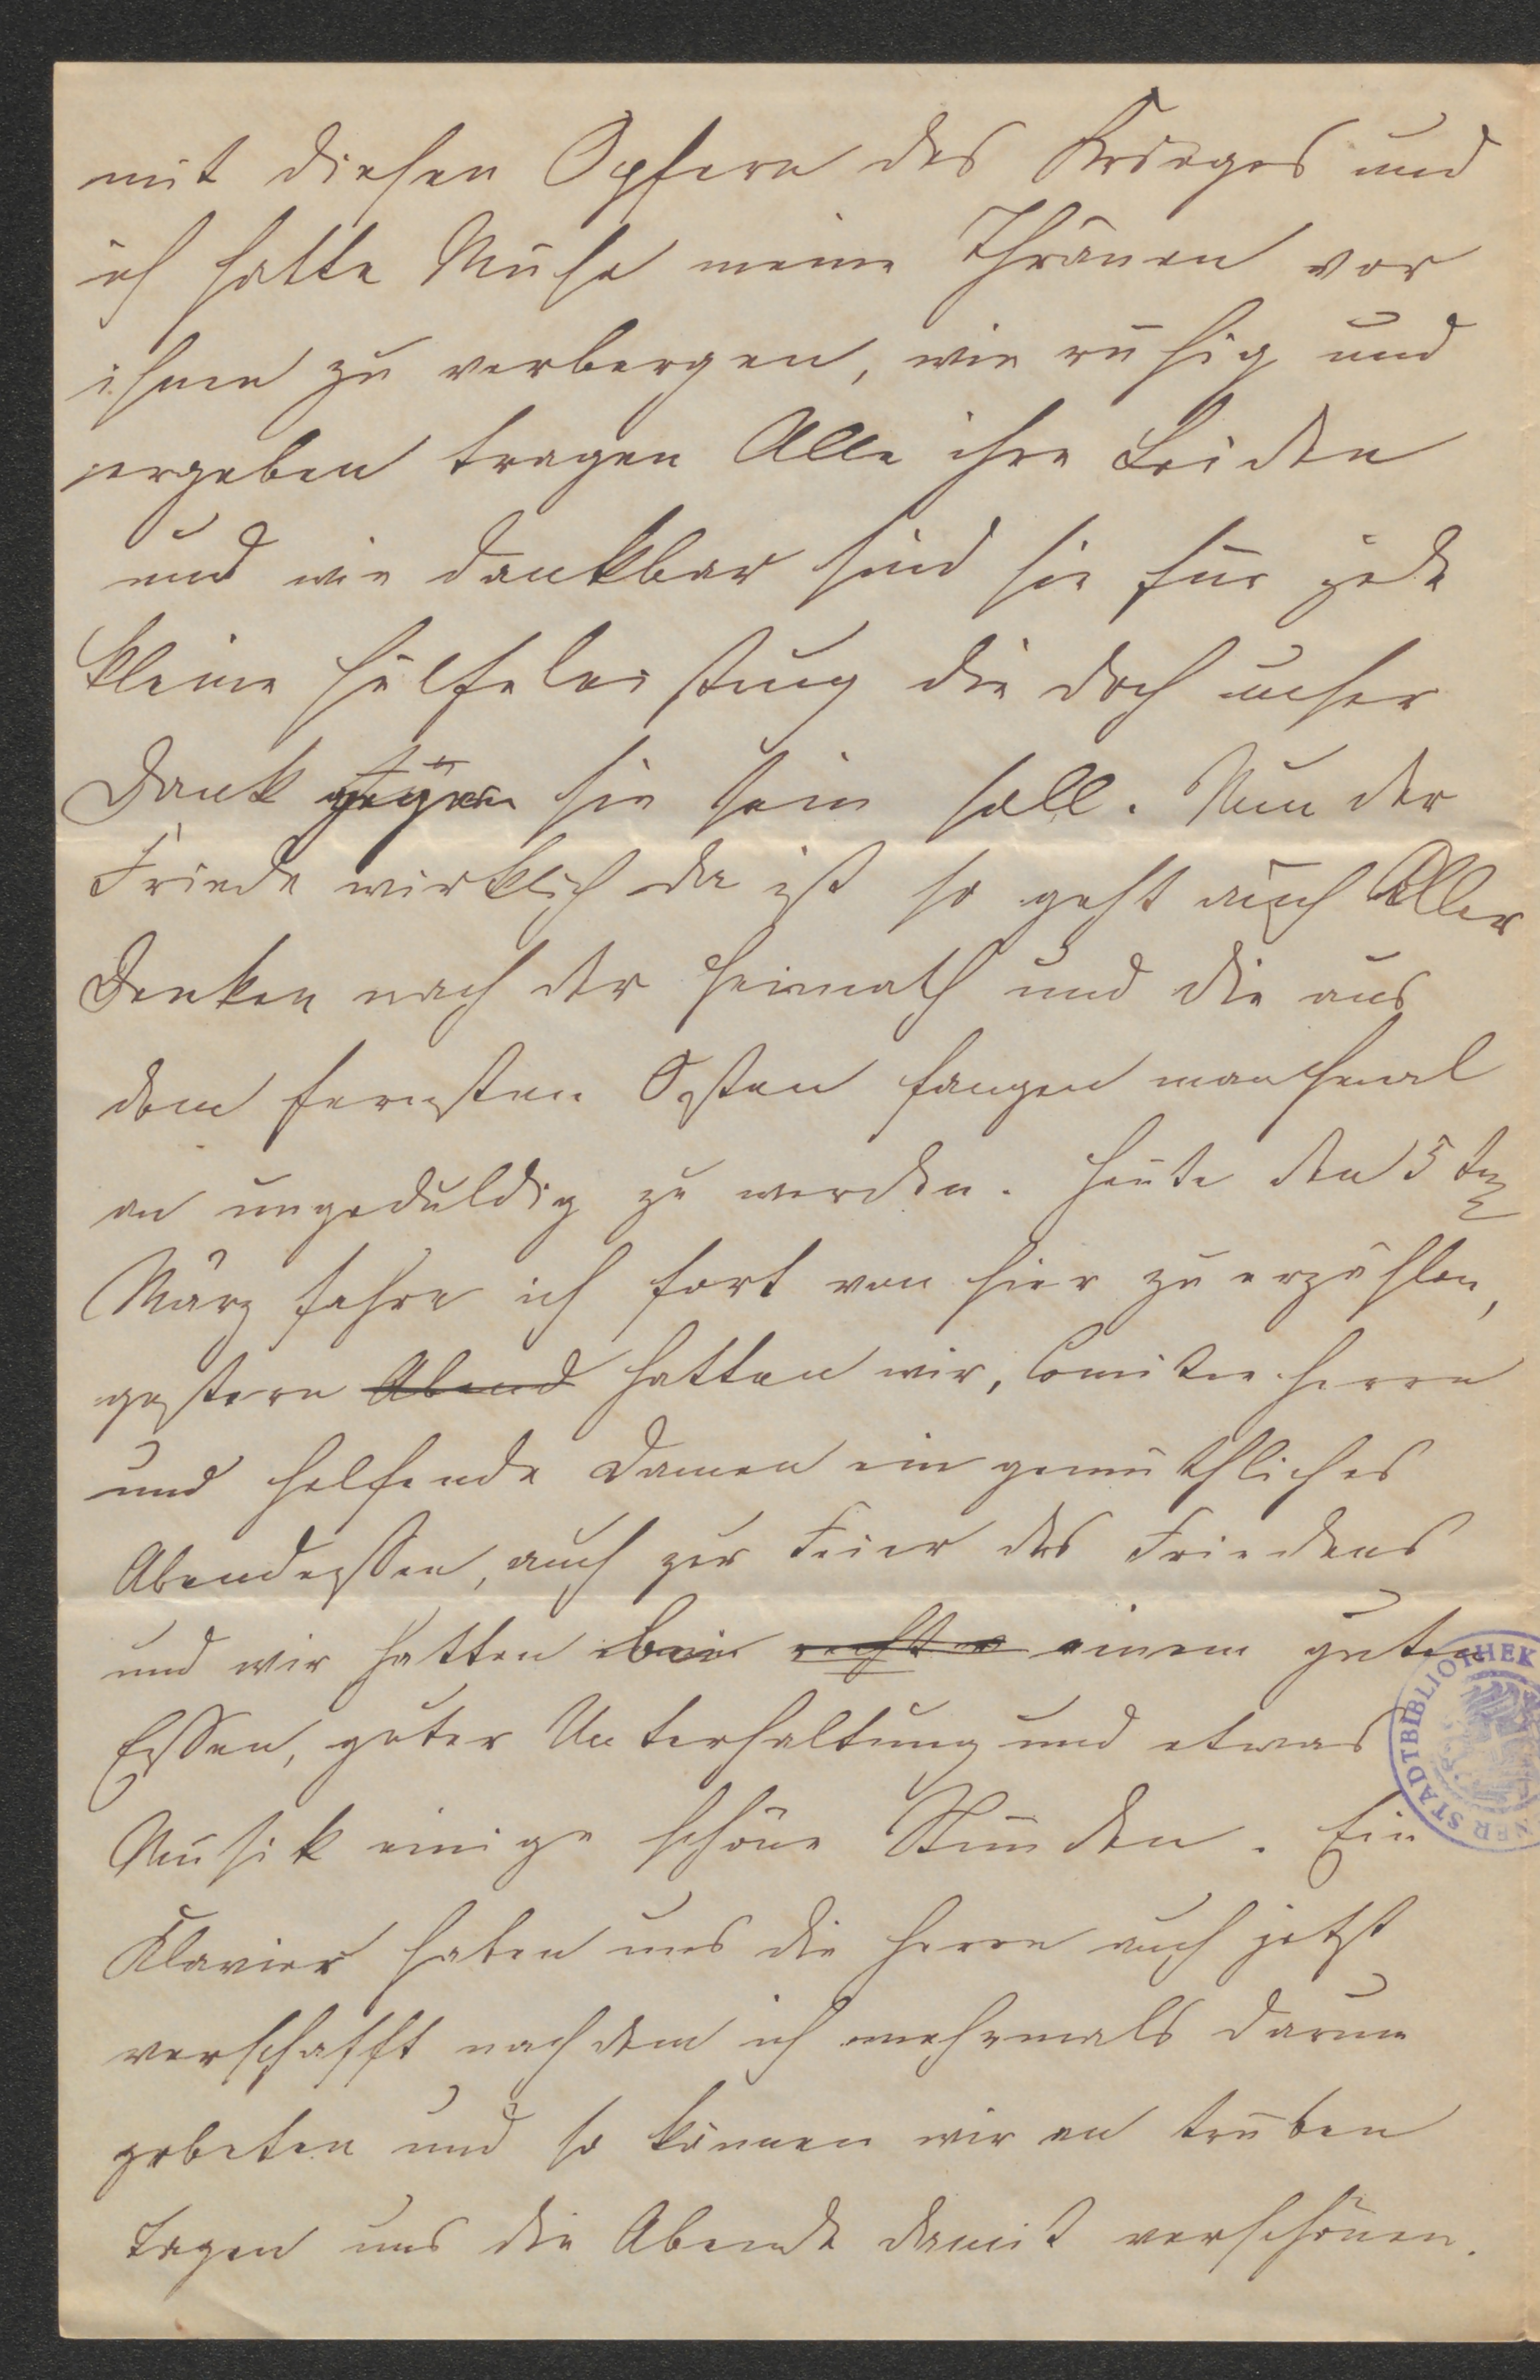 mit diesen Opfern des Krieges und
ich hatte Mühe meine Thränen vor
ihnen zu verbergen, wie ruhig und
ergeben tragen Alle ihre Leiden
und wie dankbar sind sie für jede
kleine Hülfeleistung die doch unser
Dank gegen sie sein soll. Nun der
Friede wirklich da ist so geht auch Aller
Denken nach der Heimath und die aus
dem fernsten Osten fangen manchmal
an ungeduldig zu werden. Heute den 5ten
März fahre ich fort von hier zu erzählen,
gestern Abend hatten wir, Comitee Herrn
und helfende Damen ein gemüthliches
Abendessen, auch zur Feier des Friedens
und wir hatten bei recht einem guten
Essen, guter Unterhaltung und etwas
Musik einige schöne Stunden. Ein
Klavier haben uns die Herrn auch jetzt
verschafft nachdem ich mehrmals darum
gebeten und so können wir an trüben
Tagen uns die Abende damit verschönen.
STADTBIBLIOTHEK